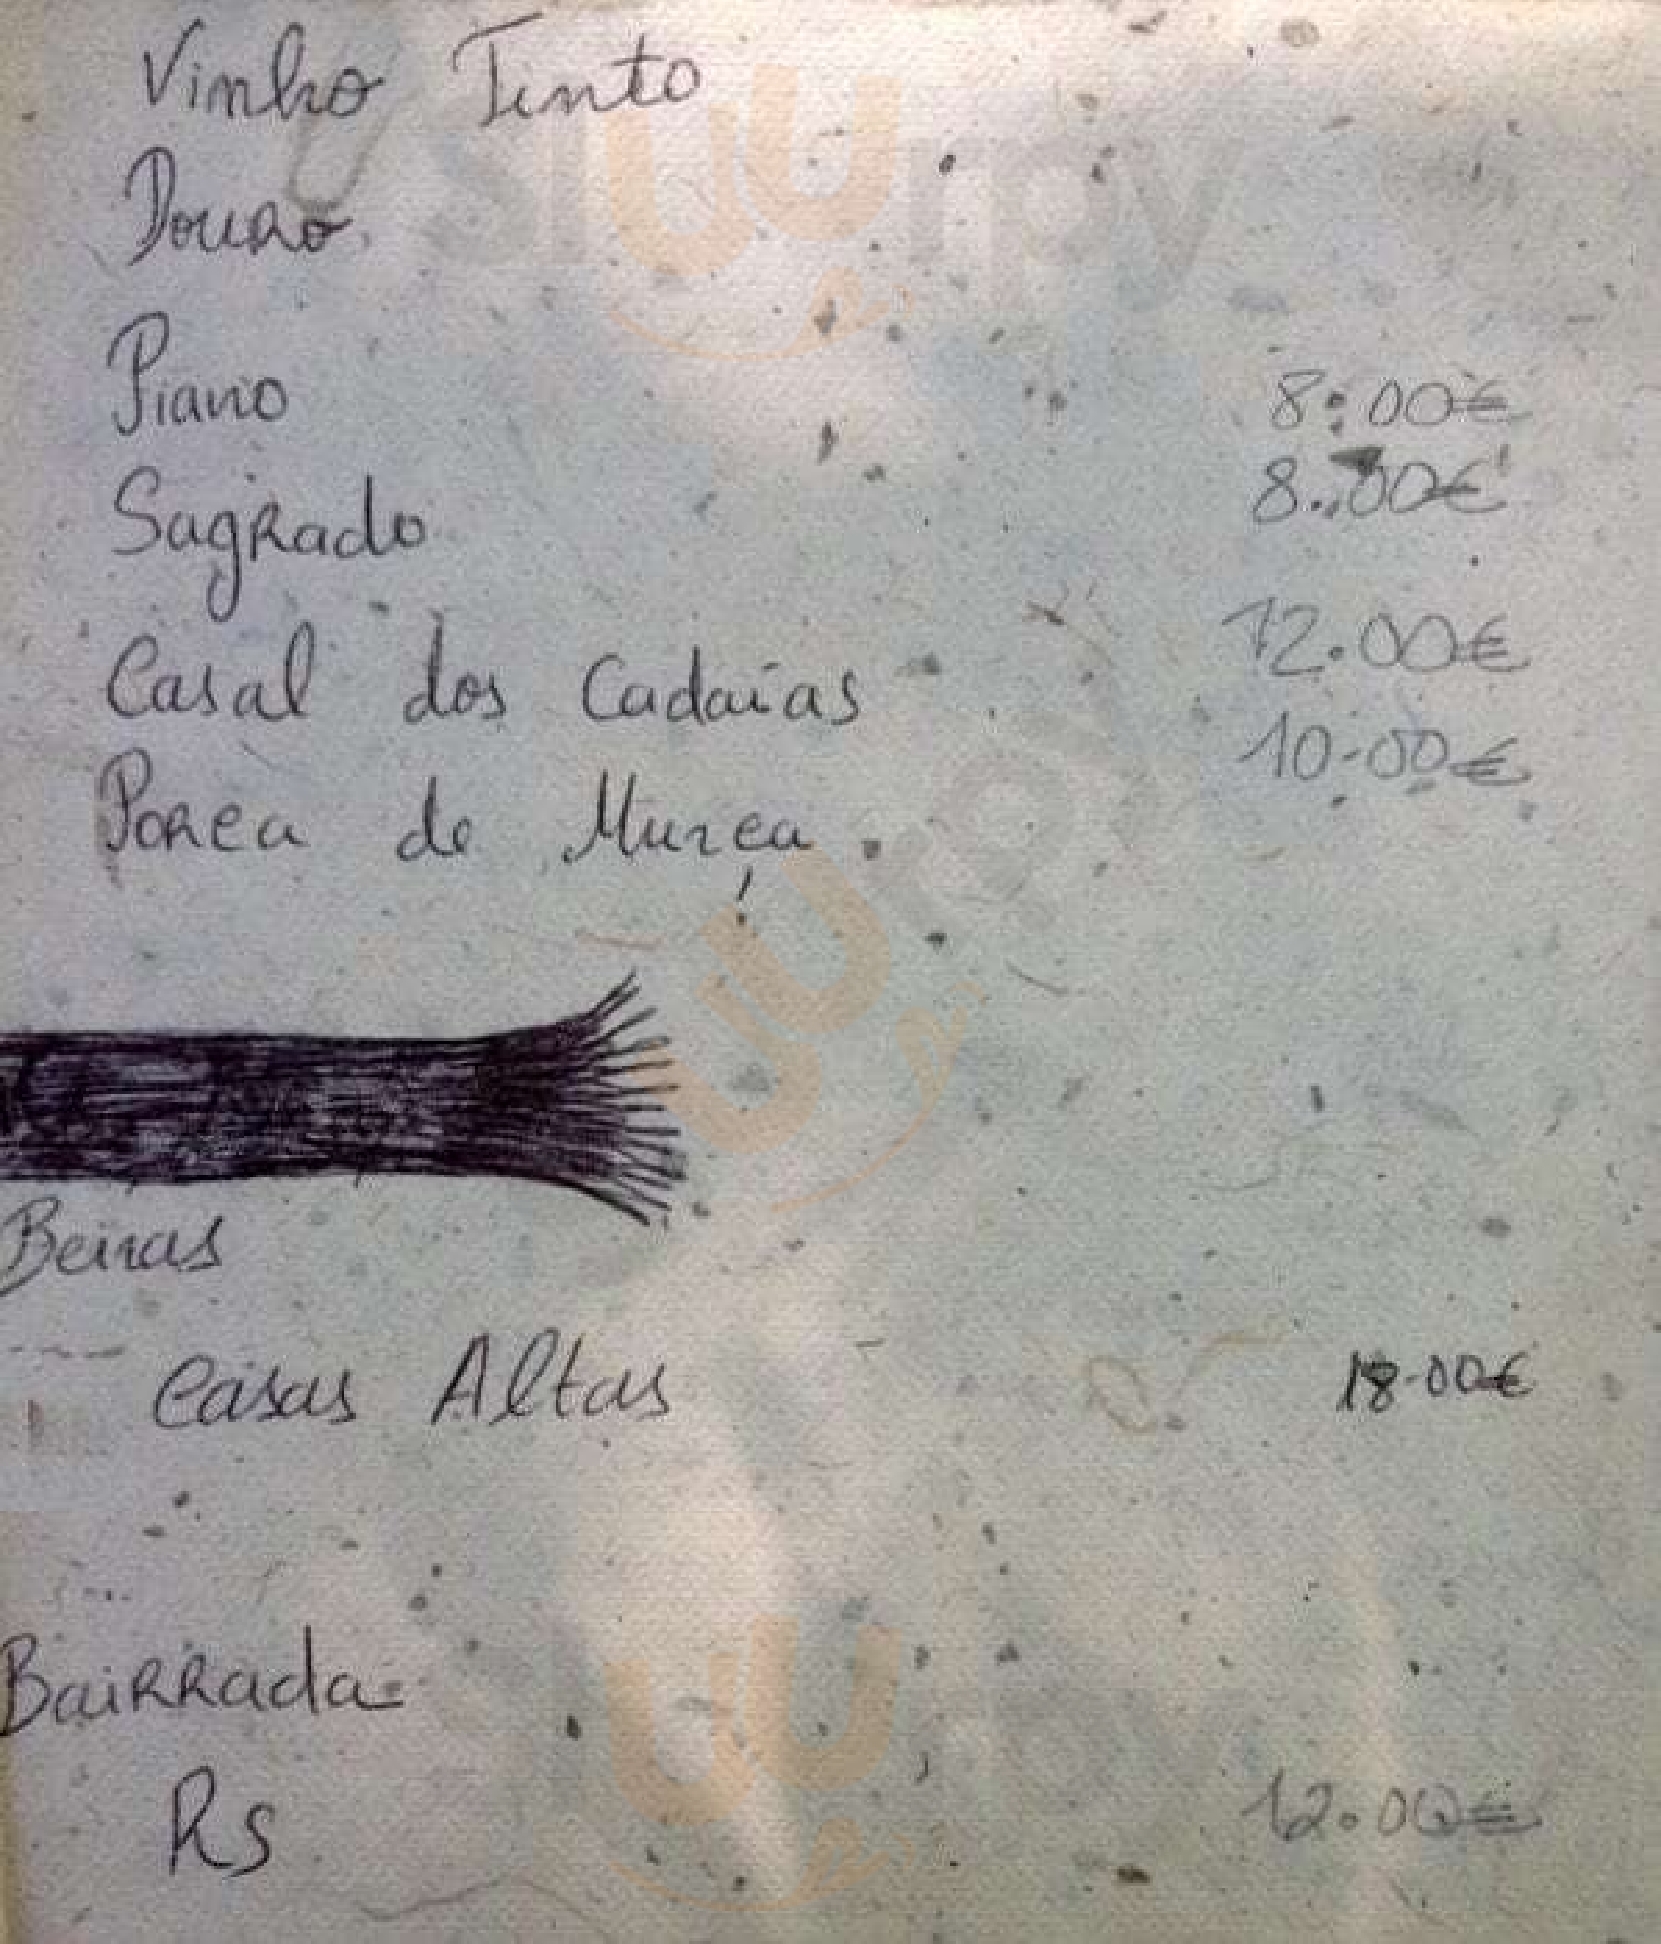 Vinho Tinto
Douro
Piano 8.00€
Sagrado 8.00€
Casal dos Cadaías 12.00€
Porca de Murça 10.00€
Beiras
Casas Altas 18.00€
Bairrada
Rs 12.00€
Slurpy
Slurpy
Slurpy